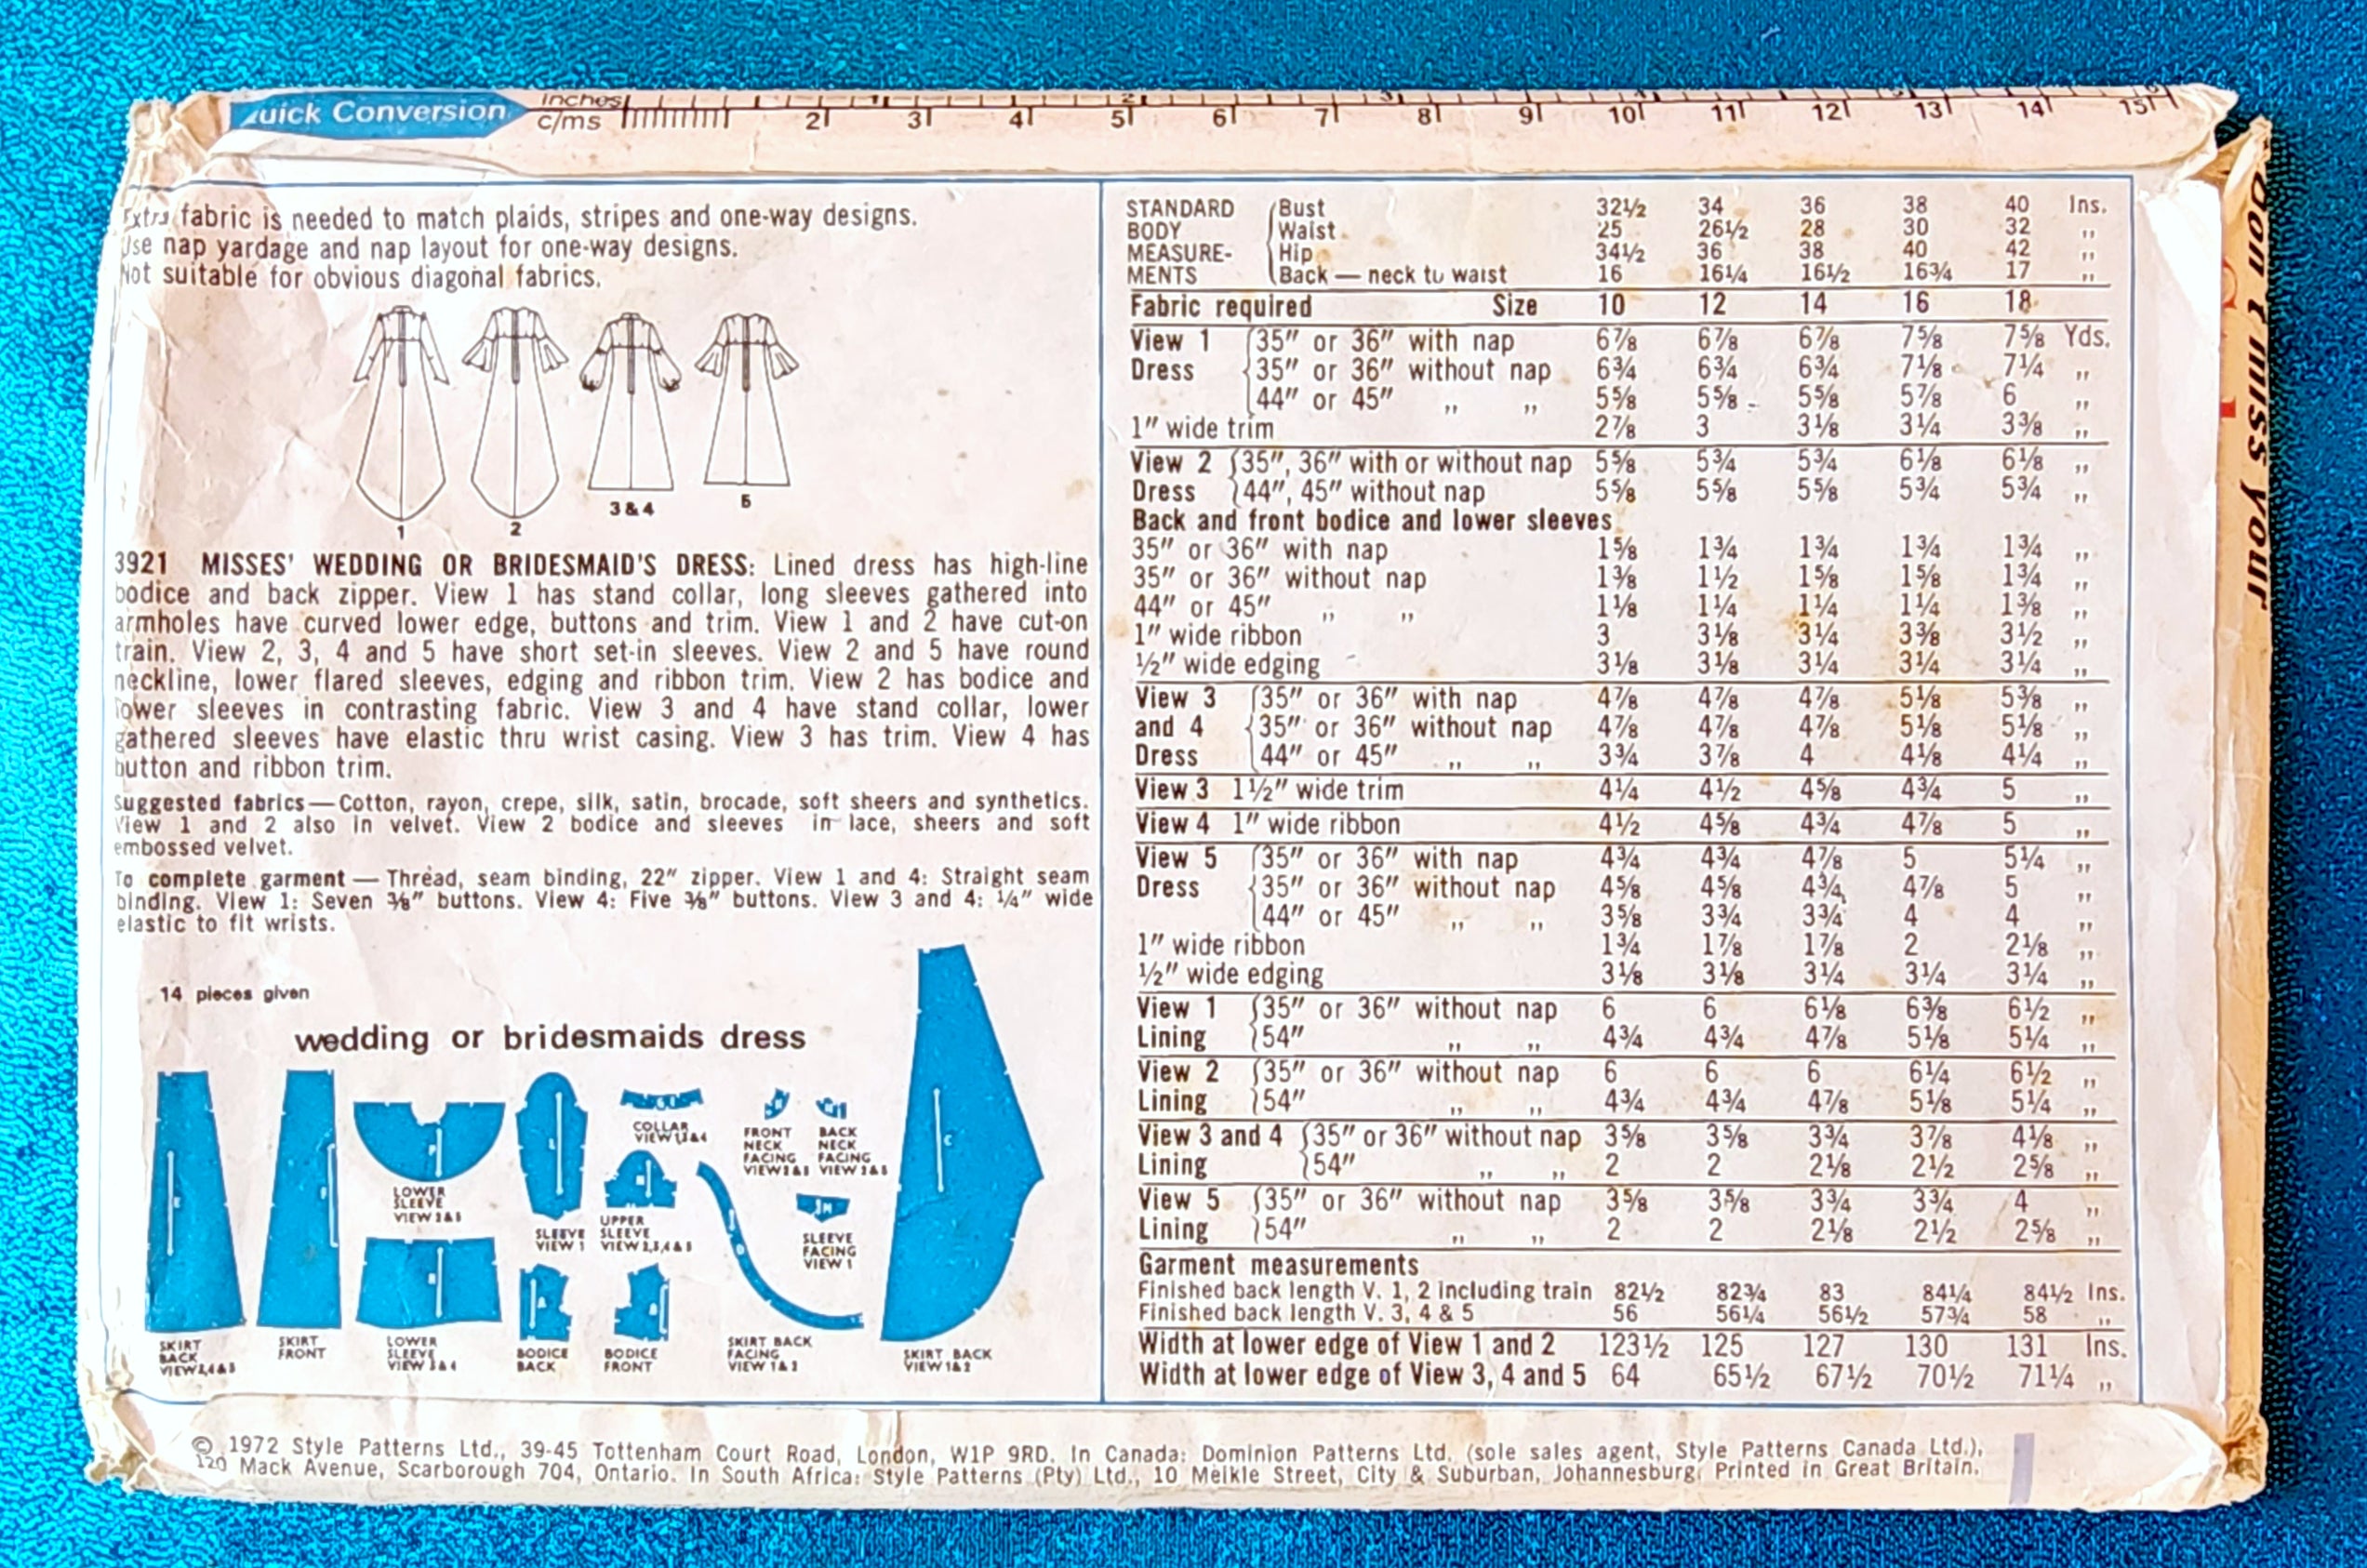 uick Conversion
inches
c/ms
1 2 3 4 5
2 3 4 5 6 7 8 9 10 11 12 13 14 15
Don't miss your
Extra fabric is needed to match plaids, stripes and one-way designs.
Use nap yardage and nap layout for one-way designs.
Not suitable for obvious diagonal fabrics.
1 2 3 & 4 5
3921 MISSES' WEDDING OR BRIDESMAID'S DRESS: Lined dress has high-line
bodice and back zipper. View 1 has stand collar, long sleeves gathered into
armholes have curved lower edge, buttons and trim. View 1 and 2 have cut-on
train. View 2, 3, 4 and 5 have short set-in sleeves. View 2 and 5 have round
neckline, lower flared sleeves, edging and ribbon trim. View 2 has bodice and
lower sleeves in contrasting fabric. View 3 and 4 have stand collar, lower
gathered sleeves have elastic thru wrist casing. View 3 has trim. View 4 has
button and ribbon trim.
Suggested fabrics — Cotton, rayon, crepe, silk, satin, brocade, soft sheers and synthetics.
View 1 and 2 also in velvet. View 2 bodice and sleeves in lace, sheers and soft
embossed velvet.
To complete garment — Thread, seam binding, 22" zipper. View 1 and 4: Straight seam
binding. View 1: Seven ⅜" buttons. View 4: Five ⅜" buttons. View 3 and 4: ¼" wide
elastic to fit wrists.
14 pieces given
wedding or bridesmaids dress
SKIRT
BACK
VIEW 3,4 & 5
SKIRT
FRONT
LOWER
SLEEVE
VIEW 2 & 5
LOWER
SLEEVE
VIEW 3 & 4
SLEEVE
VIEW 1
BODICE
BACK
COLLAR
VIEW 1,3 & 4
UPPER
SLEEVE
VIEW 2,3,4 & 5
BODICE
FRONT
FRONT
NECK
FACING
VIEW 2 & 5
BACK
NECK
FACING
VIEW 2 & 5
SLEEVE
FACING
VIEW 1
SKIRT BACK
FACING
VIEW 1 & 2
C
SKIRT BACK
VIEW 1 & 2
STANDARD Bust 32½ 34 36 38 40 Ins.
BODY Waist 25 26½ 28 30 32 ,,
MEASURE- Hip 34½ 36 38 40 42 ,,
MENTS Back — neck to waist 16 16¼ 16½ 16¾ 17 ,,
Fabric required Size 10 12 14 16 18
View 1 35" or 36" with nap 6⅞ 6⅞ 6⅞ 7⅝ 7⅝ Yds.
Dress 35" or 36" without nap 6¾ 6¾ 6¾ 7⅛ 7¼ ,,
44" or 45" ,, ,, 5⅝ 5⅝ 5⅝ 5⅞ 6 ,,
1" wide trim 2⅞ 3 3⅛ 3¼ 3⅜ ,,
View 2 35", 36" with or without nap 5⅝ 5¾ 5¾ 6⅛ 6⅛ ,,
Dress 44", 45" without nap 5⅝ 5⅝ 5⅝ 5¾ 5¾ ,,
Back and front bodice and lower sleeves
35" or 36" with nap 1⅝ 1¾ 1¾ 1¾ 1¾ ,,
35" or 36" without nap 1⅜ 1½ 1⅝ 1⅝ 1¾ ,,
44" or 45" ,, ,, 1⅛ 1¼ 1¼ 1¼ 1⅜ ,,
1" wide ribbon 3 3⅛ 3¼ 3⅜ 3½ ,,
½" wide edging 3⅛ 3⅛ 3¼ 3¼ 3¼ ,,
View 3 35" or 36" with nap 4⅞ 4⅞ 4⅞ 5⅛ 5⅜ ,,
and 4 35" or 36" without nap 4⅞ 4⅞ 4⅞ 5⅛ 5⅛ ,,
Dress 44" or 45" ,, ,, 3¾ 3⅞ 4 4⅛ 4¼ ,,
View 3 1½" wide trim 4¼ 4½ 4⅝ 4¾ 5 ,,
View 4 1" wide ribbon 4½ 4⅝ 4¾ 4⅞ 5 ,,
View 5 35" or 36" with nap 4¾ 4¾ 4⅞ 5 5¼ ,,
Dress 35" or 36" without nap 4⅝ 4⅝ 4¾ 4⅞ 5 ,,
44" or 45" ,, ,, 3⅝ 3¾ 3¾ 4 4 ,,
1" wide ribbon 1¾ 1⅞ 1⅞ 2 2⅛ ,,
½" wide edging 3⅛ 3⅛ 3¼ 3¼ 3¼ ,,
View 1 35" or 36" without nap 6 6 6⅛ 6⅜ 6½ ,,
Lining 54" ,, ,, 4¾ 4¾ 4⅞ 5⅛ 5¼ ,,
View 2 35" or 36" without nap 6 6 6 6¼ 6½ ,,
Lining 54" ,, ,, 4¾ 4¾ 4⅞ 5⅛ 5¼ ,,
View 3 and 4 35" or 36" without nap 3⅝ 3⅝ 3¾ 3⅞ 4⅛ ,,
Lining 54" ,, ,, 2 2 2⅛ 2½ 2⅝ ,,
View 5 35" or 36" without nap 3⅝ 3⅝ 3¾ 3¾ 4 ,,
Lining 54" ,, ,, 2 2 2⅛ 2½ 2⅝ ,,
Garment measurements
Finished back length V. 1, 2 including train 82½ 82¾ 83 84¼ 84½ Ins.
Finished back length V. 3, 4 & 5 56 56¼ 56½ 57¾ 58 ,,
Width at lower edge of View 1 and 2 123½ 125 127 130 131 Ins.
Width at lower edge of View 3, 4 and 5 64 65½ 67½ 70½ 71¼ ,,
© 1972 Style Patterns Ltd., 39-45 Tottenham Court Road, London, W1P 9RD. In Canada: Dominion Patterns Ltd. (sole sales agent, Style Patterns Canada Ltd.),
120 Mack Avenue, Scarborough 704, Ontario. In South Africa: Style Patterns (Pty) Ltd., 10 Meikle Street, City & Suburban, Johannesburg. Printed in Great Britain.